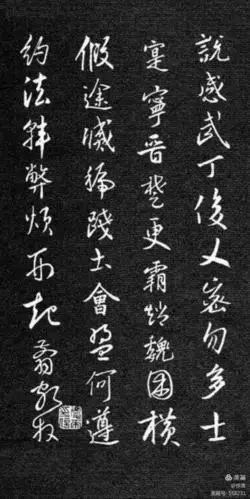 說感武丁俊乂密勿多士
寔寧晉楚更霸趙魏困橫
假途滅虢踐土會盟何遵
約法韓弊煩刑起翦頗牧
美篇